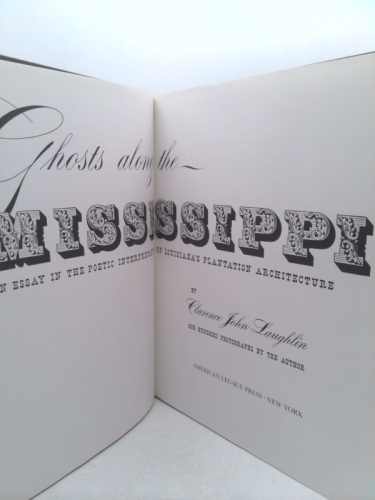 Ghosts along the
MISSISSIPPI
AN ESSAY IN THE POETIC INTERPRETATION OF LOUISIANA'S PLANTATION ARCHITECTURE
BY
Clarence John Laughlin
ONE HUNDRED PHOTOGRAPHS BY THE AUTHOR
AMERICAN LEGACY PRESS · NEW YORK